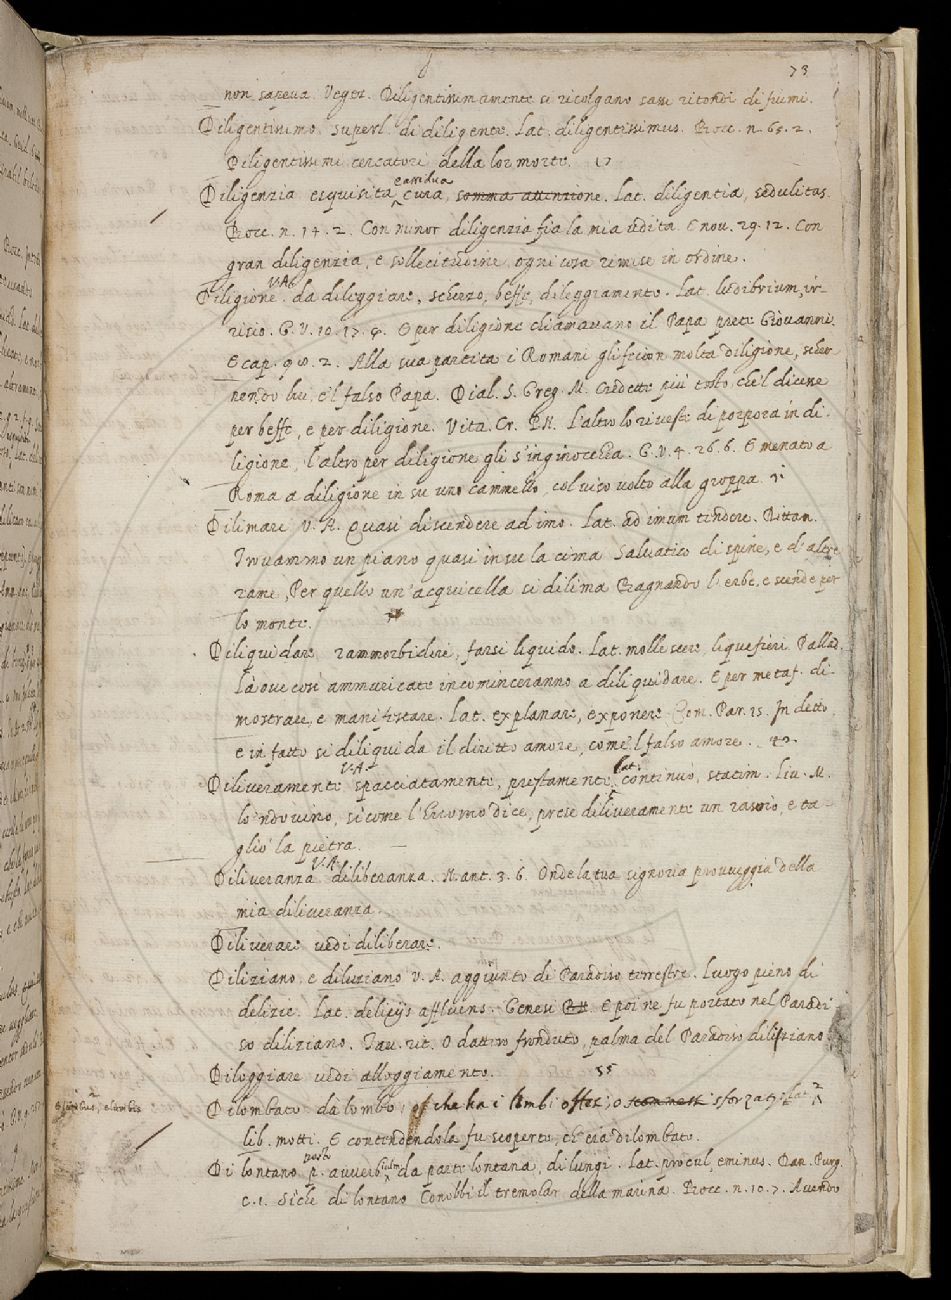 73
non sapeva. Veget. Diligentissimamente si ricolgano sassi ritondi di fiumi.
Diligentissimo. Superl. di diligente. Lat. diligentissimus. Bocc. n. 65. 2.
Diligentissimi cercatori della lor morte.
Diligenzia esquisita, e assidua cura, somma attenzione. Lat. diligentia, sedulitas.
Bocc. n. 14. 2. Con minor diligenzia fia la mia udita. E nov. 29. 12. Con
gran diligenzia, e sollecitudine, ogni cosa rimise in ordine.
Diligione. V.A. da dileggiare, scherzo, beffe, dileggiamento. Lat. ludibrium, ir-
risio. G. V. 10. 17. 4. E per diligione chiamavano il Papa prete Giovanni.
E cap. 98. 2. Alla sua partita i Romani gli fecion molta diligione, scher
nendo lui, e'l falso Papa. Dial. S. Greg. M. Credette più tosto che'l dicesse
per beffe, e per diligione. Vita. Cr. L'altro lo riveste di porpora in di-
ligione, l'altro per diligione gli s'inginocchia. G. V. 4. 26. 6. E menato a
Roma a diligione in su uno cammello, col viso volto alla groppa.
Dilimare V. A. Quasi discendere ad imo. Lat. ad imum tendere. Rittm.
Trovammo un piano quasi in su la cima Salvatico di spine, e d'altre
rami, Per quello un'acquicella si dilima Bagnando l'erbe, e scende per
lo monte.
Diliquidare rammorbidire, farsi liquido. Lat. mollescere, liquefieri. Pallad.
Là ove così ammuricate incominceranno a diliquidare. E per metaf. di-
mostrare, e manifestare. Lat. explanare, exponere. Com. Par. 15. In detto,
e in fatto si diliquida il diritto amore, come'l falso amore.
Diliveramente V.A. spacciatamente, prestamente, lat. continuò, statim. Liv. M.
lo'ndovino, si come l'huomo dice, prese diliveramente un rasoio, e ta-
gliò la pietra.
Diliveranza V.A. diliberanza. M. ant. 3. 6. Onde la tua signoria provveggia della
mia diliveranza.
Diliverare vedi diliberare.
Diliziano, e diluziano V. A. aggiunto di Paradiso terrestre. Luogo pieno di
delizie. Lat. delicijs affluens. Genesi E poi ne fu portato nel Paradi
so diliziano. Tav. rit. O dattero fronduto, palma del Paradiso diliziano
Diloggiare vedi alloggiamento.
Dilombato da lombo, che ha i lombi offesi, o sforzati. Lat.
elumbis
lib. motti. E contendendola fu scoperto, ch'era dilombato.
Di lontano posto avverb. da parte lontana, di lungi. Lat. procul, eminus. Dan. Purg.
c. 1. Sì che di lontano Conobbi il tremolar della marina. Bocc. n. 10. 7. Avendo